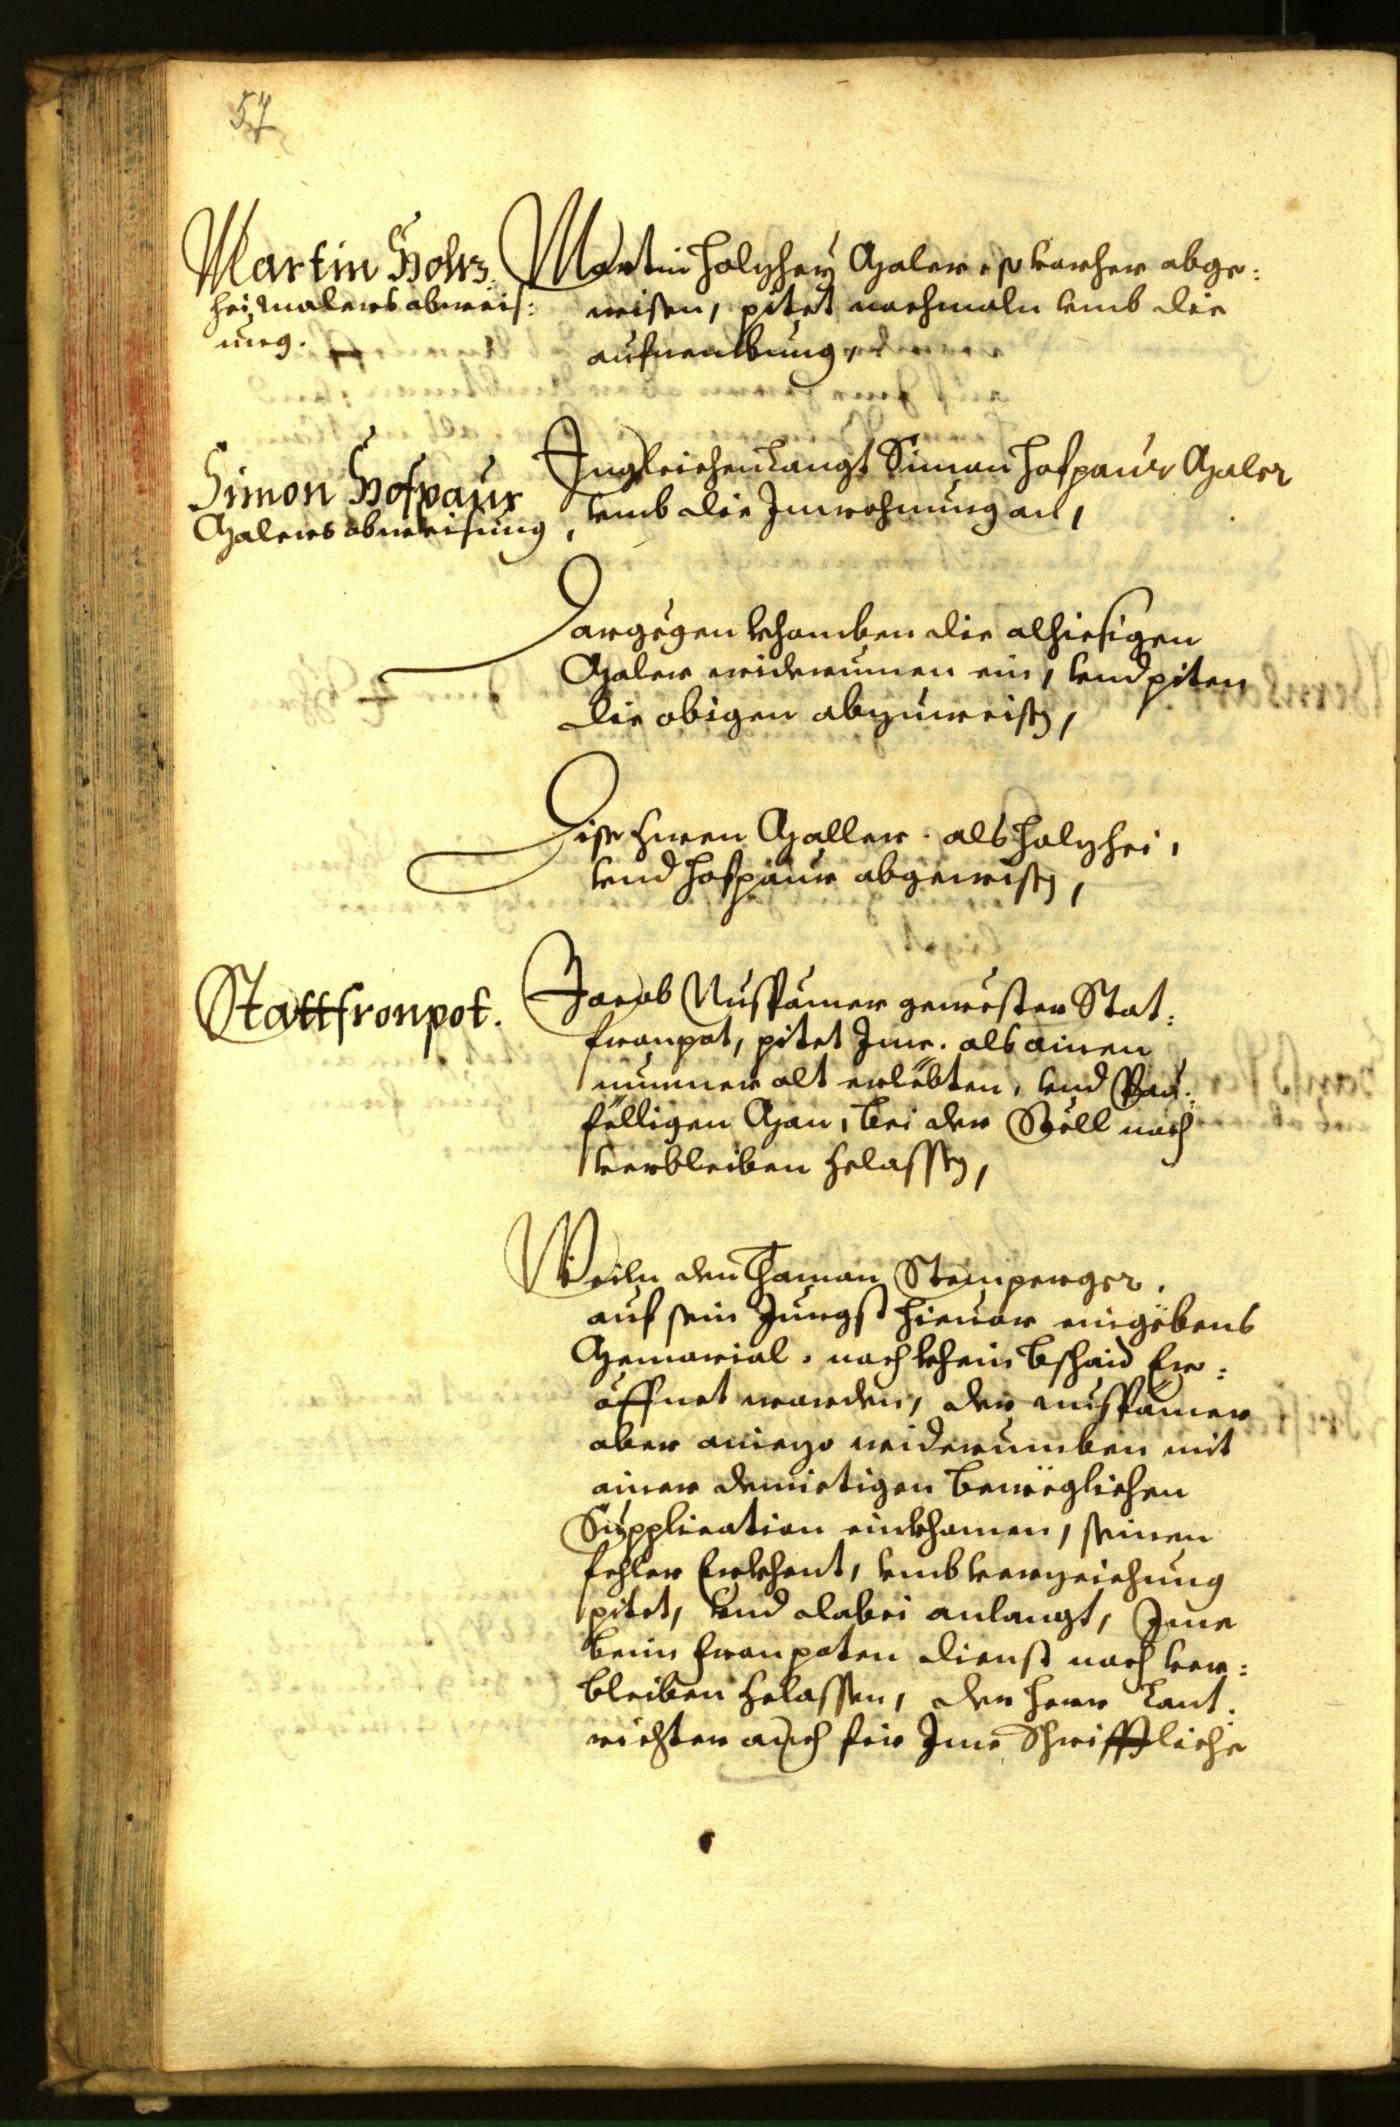 57
Martin Holz:
hei malers abweis:
ung.
Martin Holzhey Maler so vorher abge:
wisen, pitet nochmaln umb die
aufnembung,
Simon Hofpaur
Malers abweisung,
Ingleichen langt Simon Hofpaur Maler
umb die Inwohnung an,
Dargegen khomben die alhiesigen
Maler widerumen ein, und piten
die obigen abzuweisen,
Dise zween Maller. als Holzhei,
und Hofpaur abgewisen,
Stattfronpot.
Jacob Nuspamer gewester Stat:
fronpot, pitet Ime. als ainen
nunmer alt erlebten, und Pau:
felligen Man, bei der Stell noch
verbleiben zelassen,
Weiln den Thoman Stemperger,
auf sein Jungst hievor eingebens
Memorial. noch khein bschaid Er:
öffnet worden, der nuspamer
aber aniezo widerumben mit
ainer demietigen beweglichen
Supplication einkhomen, seinen
fehler Erkhent, umb verzeichung
pitet, und dabei anlangt, Ime
beim fronpoten dienst noch ver:
bleiben zelassen, der Herr Lant:
richter auch fir Ime Schrifftliche